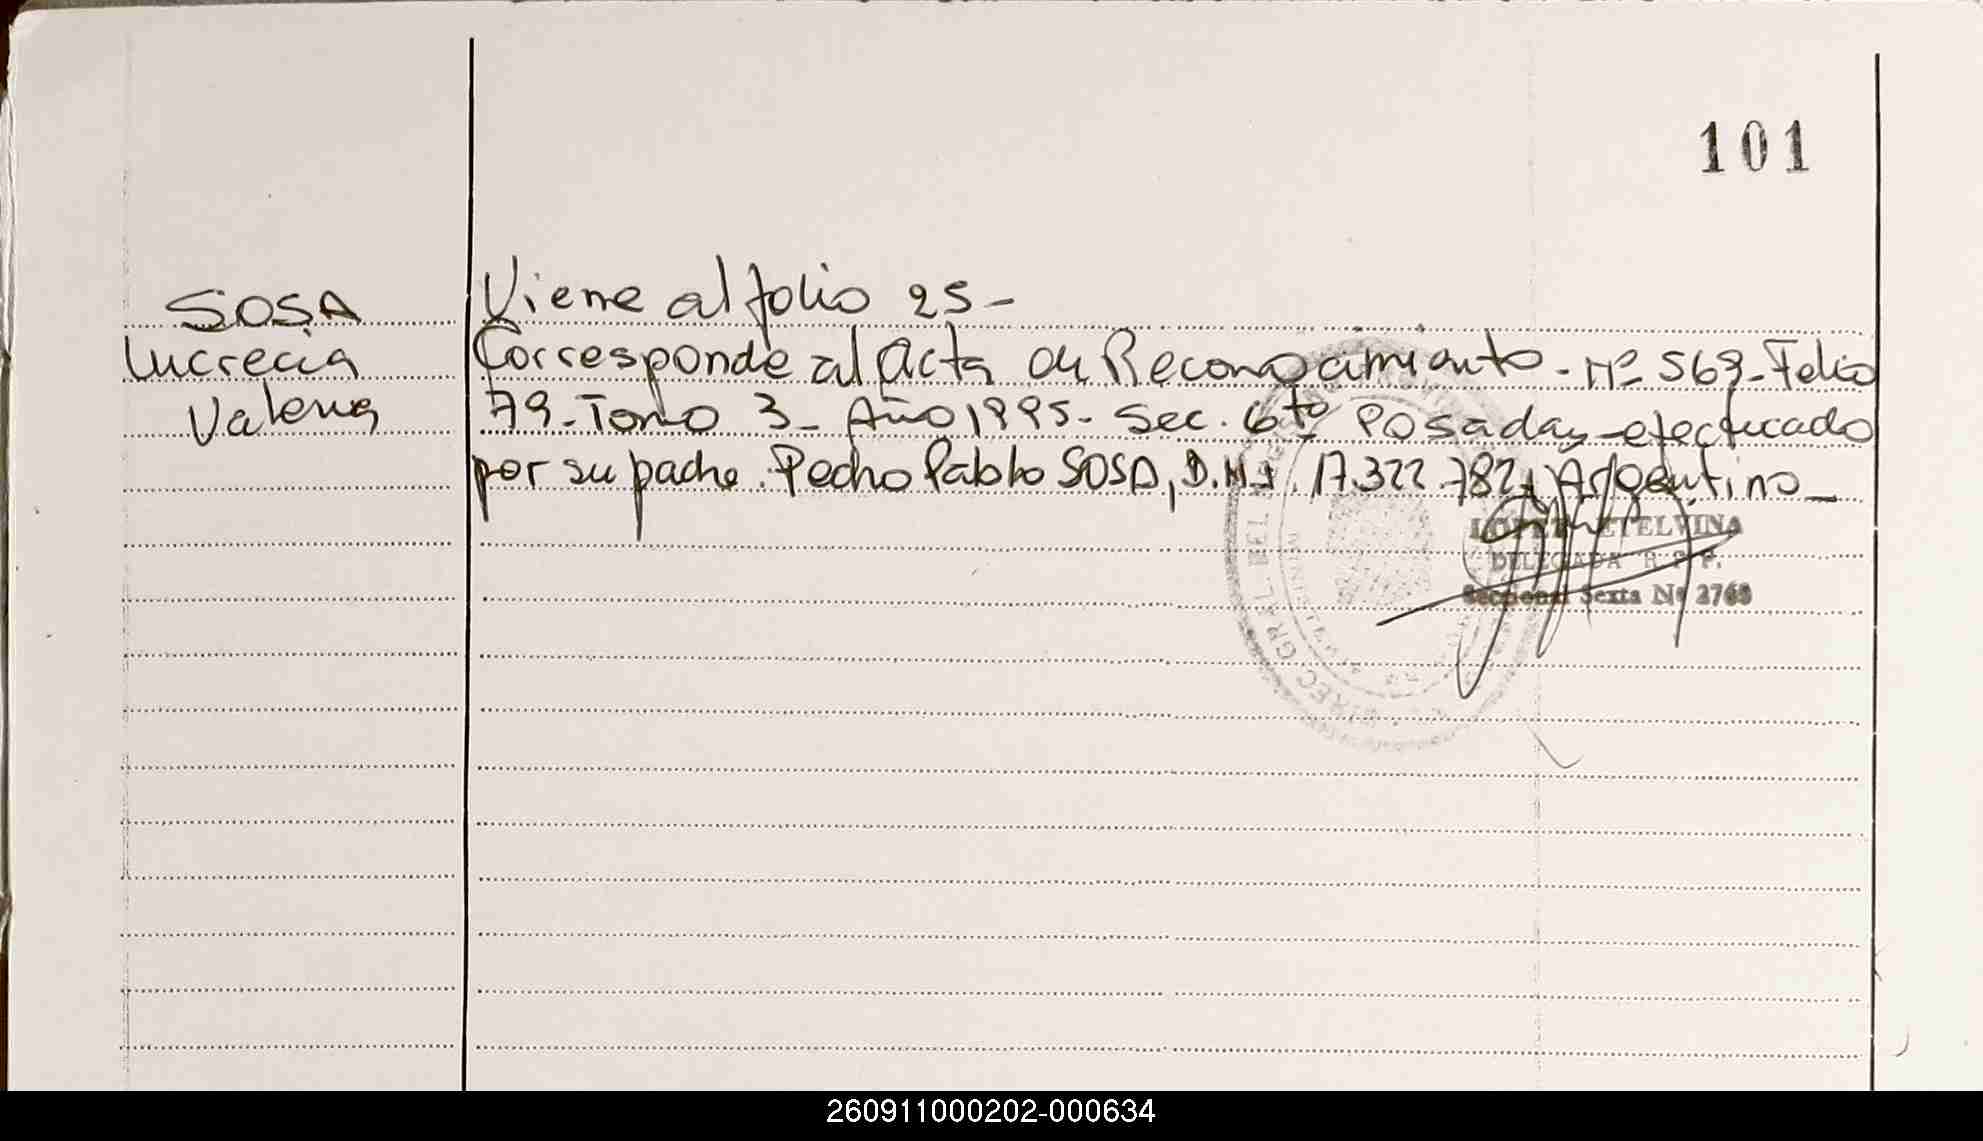 101
SOSA
Lucrecia
Valeria
Viene al folio 25-
Corresponde al Acta de Reconocimiento - Nº 569 - Folio
79 - Tomo 3 - Año 1995 - Sec. 6ta Posadas - efectuado
por su padre. Pedro Pablo SOSA, D.N.I. 17.322.782, Argentino -
ETELVINA
DELEGADA R. P.
Seccional Sexta Nº 2768
DIREC. GRAL. DEL
260911000202-000634